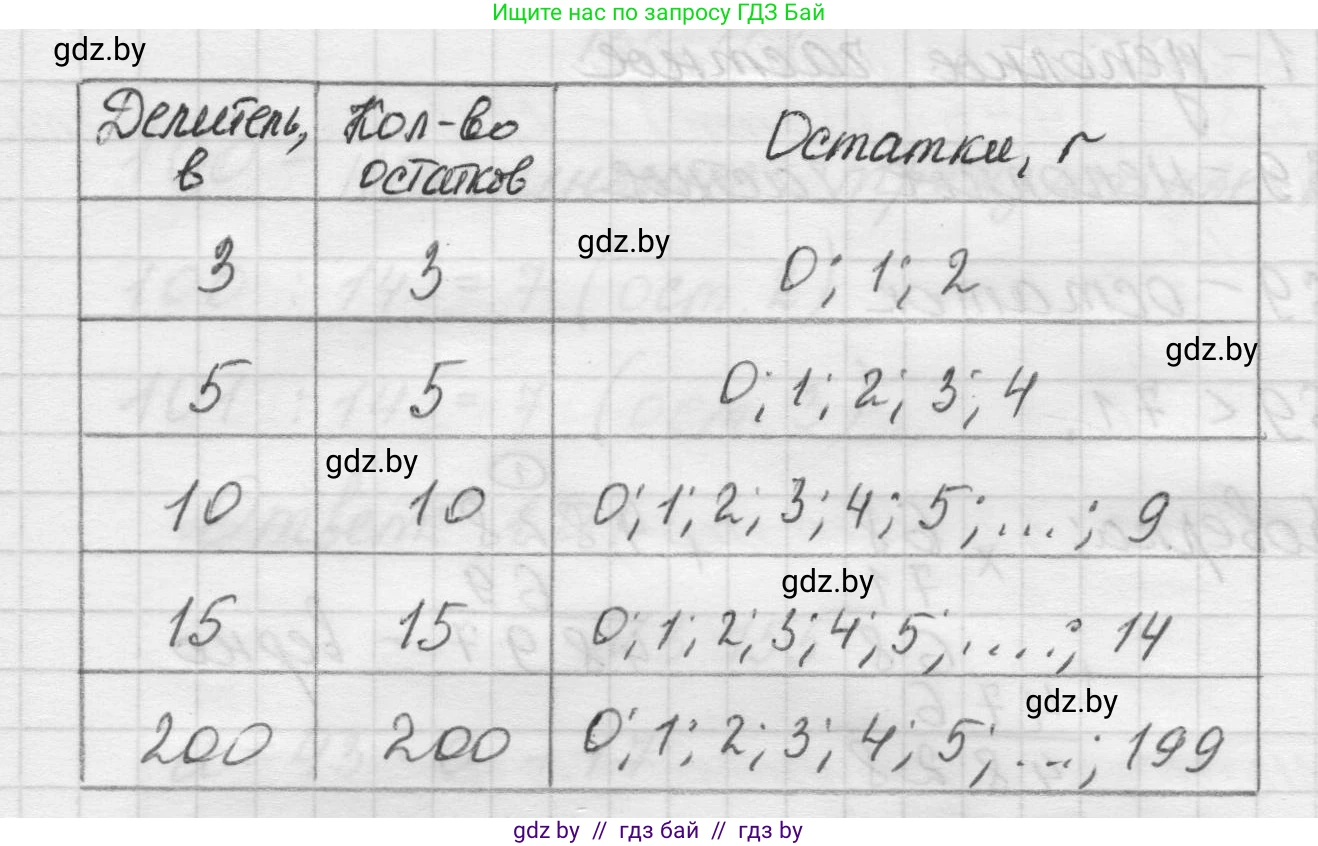 Ищите нас по запросу ГДЗ Бай
gdz.by
Делитель, в
Кол-во остатков
Остатки, r
3 3 gdz.by 0; 1; 2
gdz.by
5 5 0; 1; 2; 3; 4
gdz.by
10 10 0; 1; 2; 3; 4; 5; ...; 9
gdz.by
15 15 0; 1; 2; 3; 4; 5; ....; 14
gdz.by
200 200 0; 1; 2; 3; 4; 5; ...; 199
gdz.by // гдз бай // гдз by